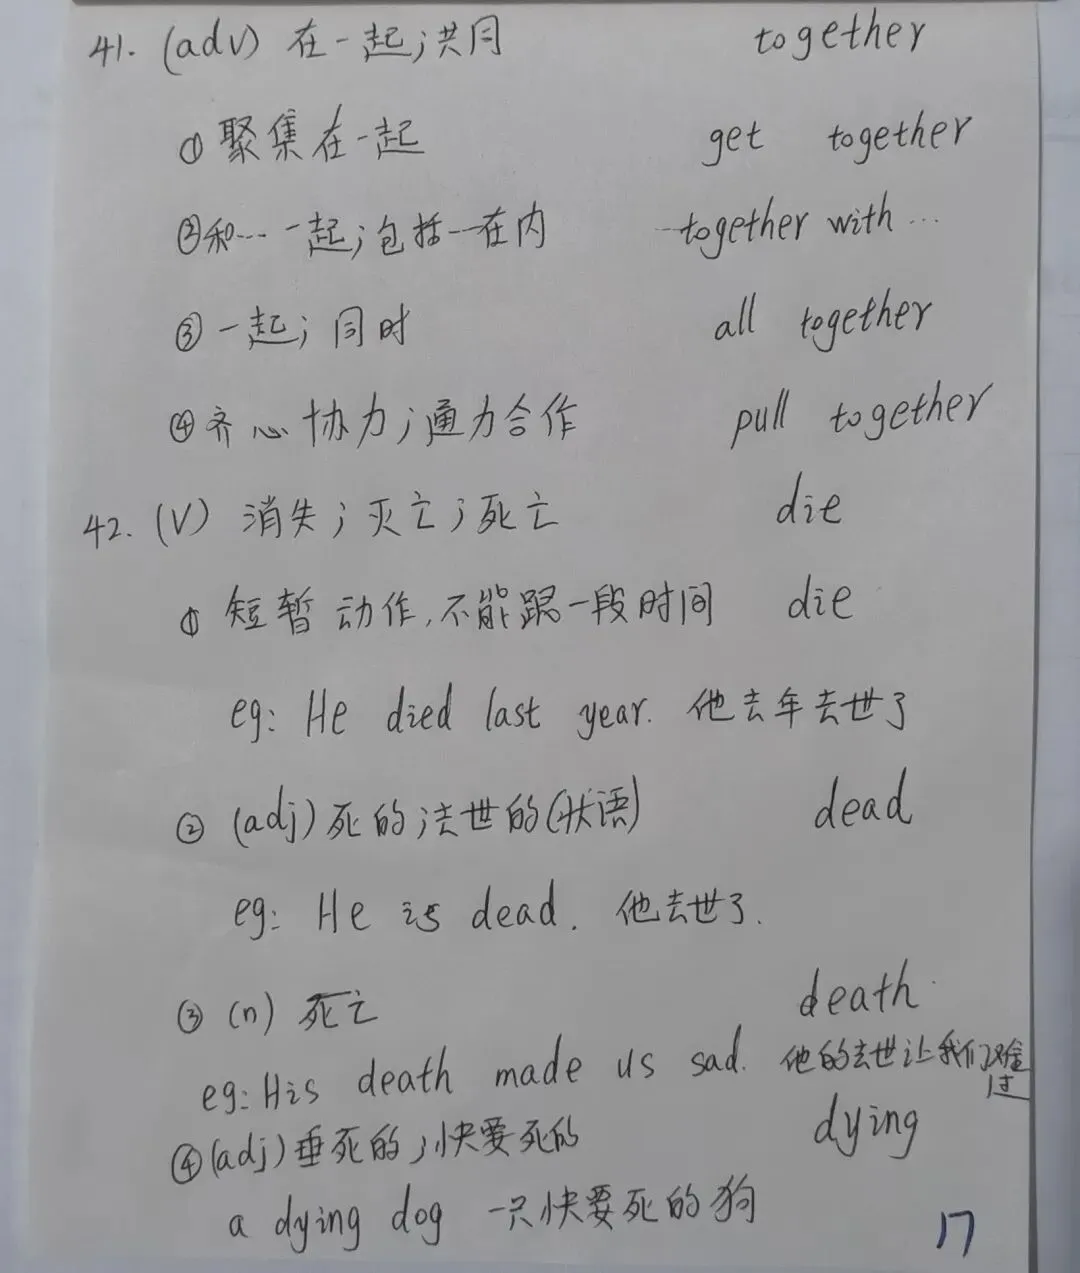 41. (adv) 在一起；共同 together
① 聚集在一起 get together
② 和… 一起；包括…在内 together with …
③ 一起；同时 all together
④ 齐心协力；通力合作 pull together
42. (V) 消失；灭亡；死亡 die
① 短暂动作,不能跟一段时间 die
eg: He died last year. 他去年去世了
② (adj) 死的；去世的(状语) dead
eg: He is dead. 他去世了.
③ (n) 死亡 death
eg: His death made us sad. 他的去世让我们难过
④ (adj) 垂死的；快要死的 dying
a dying dog 一只快要死的狗
17